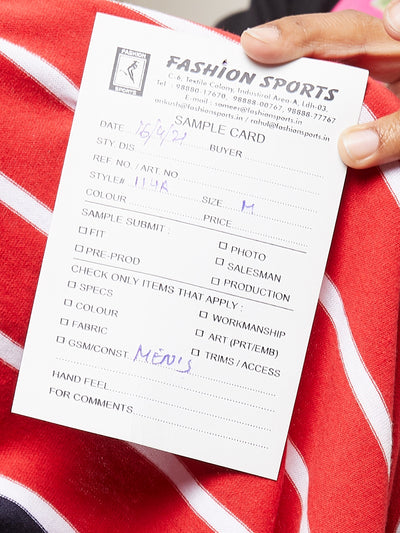 FASHION
SPORTS
FASHION SPORTS
C-6, Textile Colony, Industrial Area-A, Ldh-03.
Tel : 98880-17670, 98888-00767, 98888-77767
E-mail : sameer@fashionsports.in
mikush@fashionsports.in / rahul@fashionsports.in
SAMPLE CARD
DATE 16/9/21 BUYER
STY. DIS
REF. NO. / ART. NO
STYLE# 114R SIZE M
COLOUR PRICE
SAMPLE SUBMIT :
□ FIT □ PHOTO
□ PRE-PROD □ SALESMAN
□ PRODUCTION
CHECK ONLY ITEMS THAT APPLY :
□ SPECS □ WORKMANSHIP
□ COLOUR □ ART (PRT/EMB)
□ FABRIC □ TRIMS / ACCESS
□ GSM/CONST. MEN'S
HAND FEEL
FOR COMMENTS